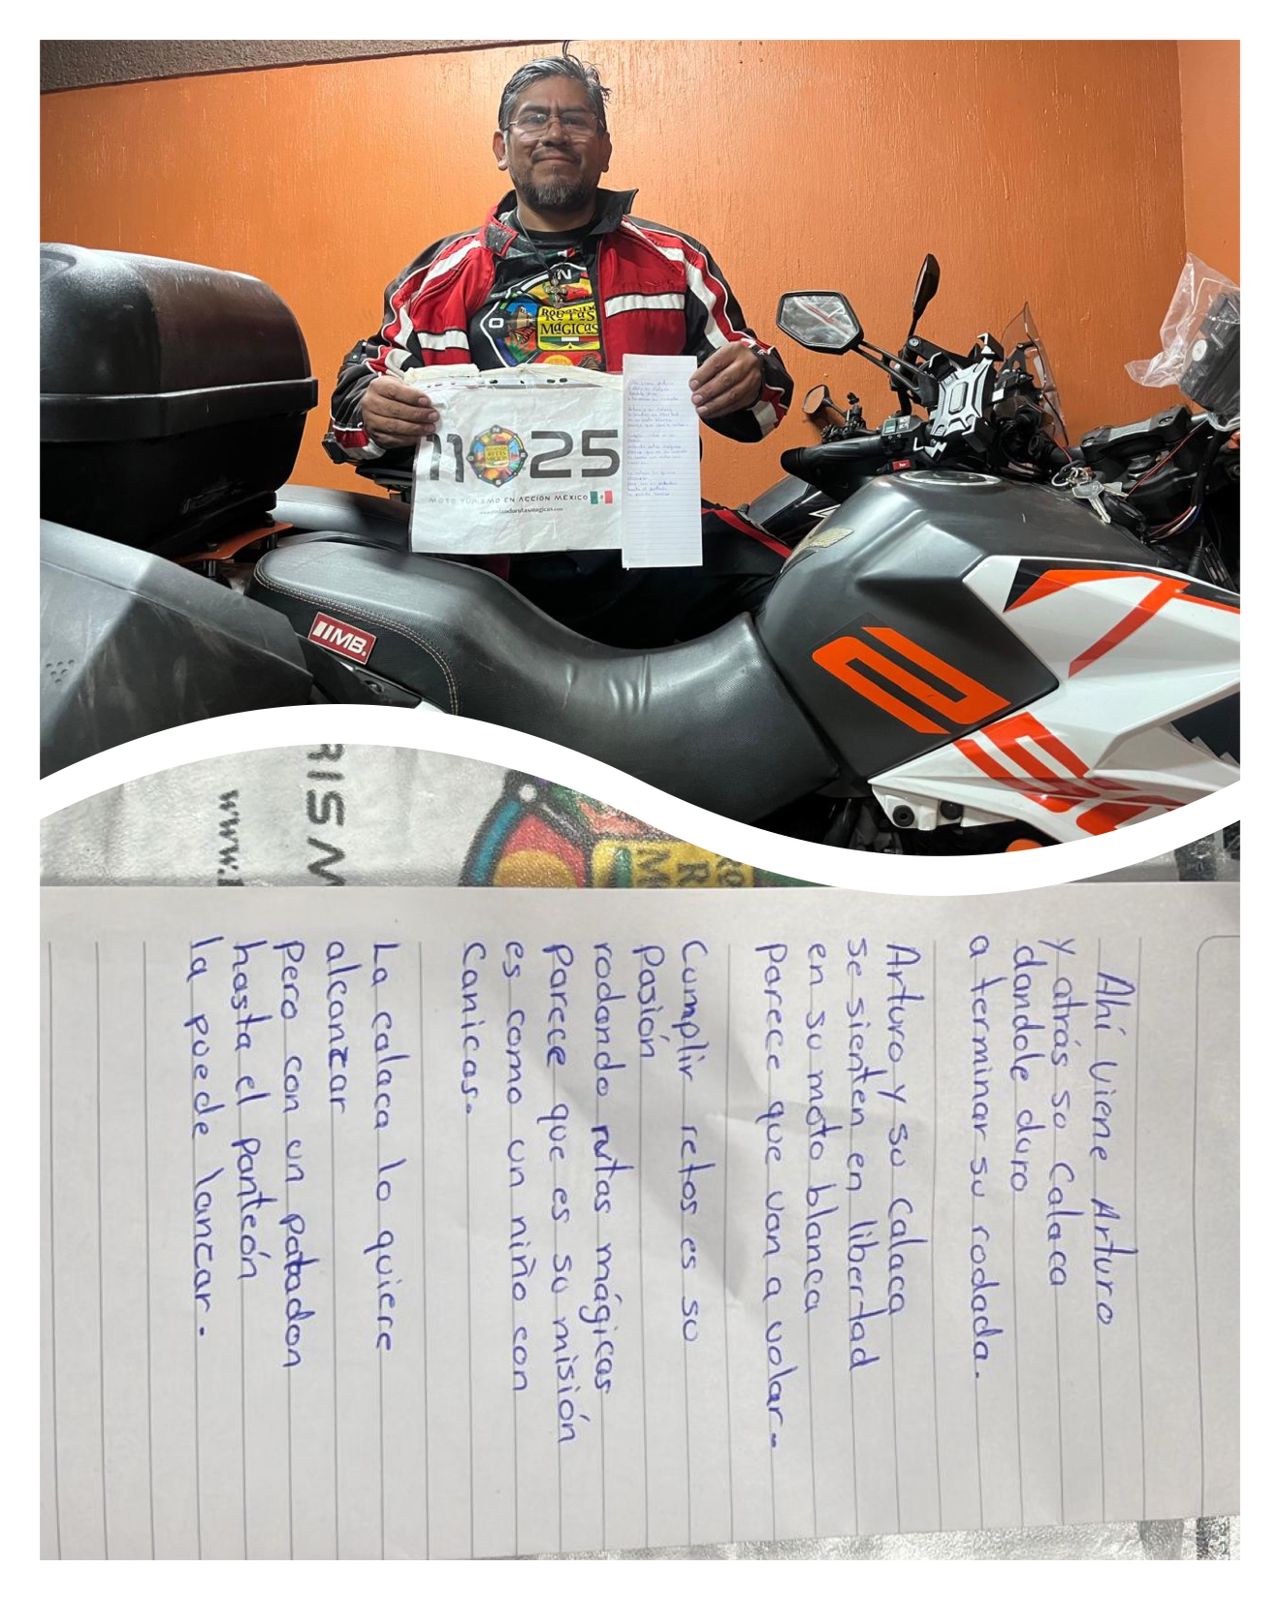 N
O
RODANDO
RUTAS
MAGICAS
11 25
MOTO TURISMO EN ACCIÓN MÉXICO
www.rodandorutasmagicas.com
MB.
RISM
www.
Ahí viene Arturo
y atrás su Calaca
dandole duro
a terminar su rodada.
Arturo y su Calaca
se sienten en libertad
en su moto blanca
parece que van a volar.
Cumplir retos es su
pasión
rodando rutas mágicas
parece que es su misión
es como un niño con
canicas.
La calaca lo quiere
alcanzar
pero con un patadon
hasta el panteón
la puede lanzar.